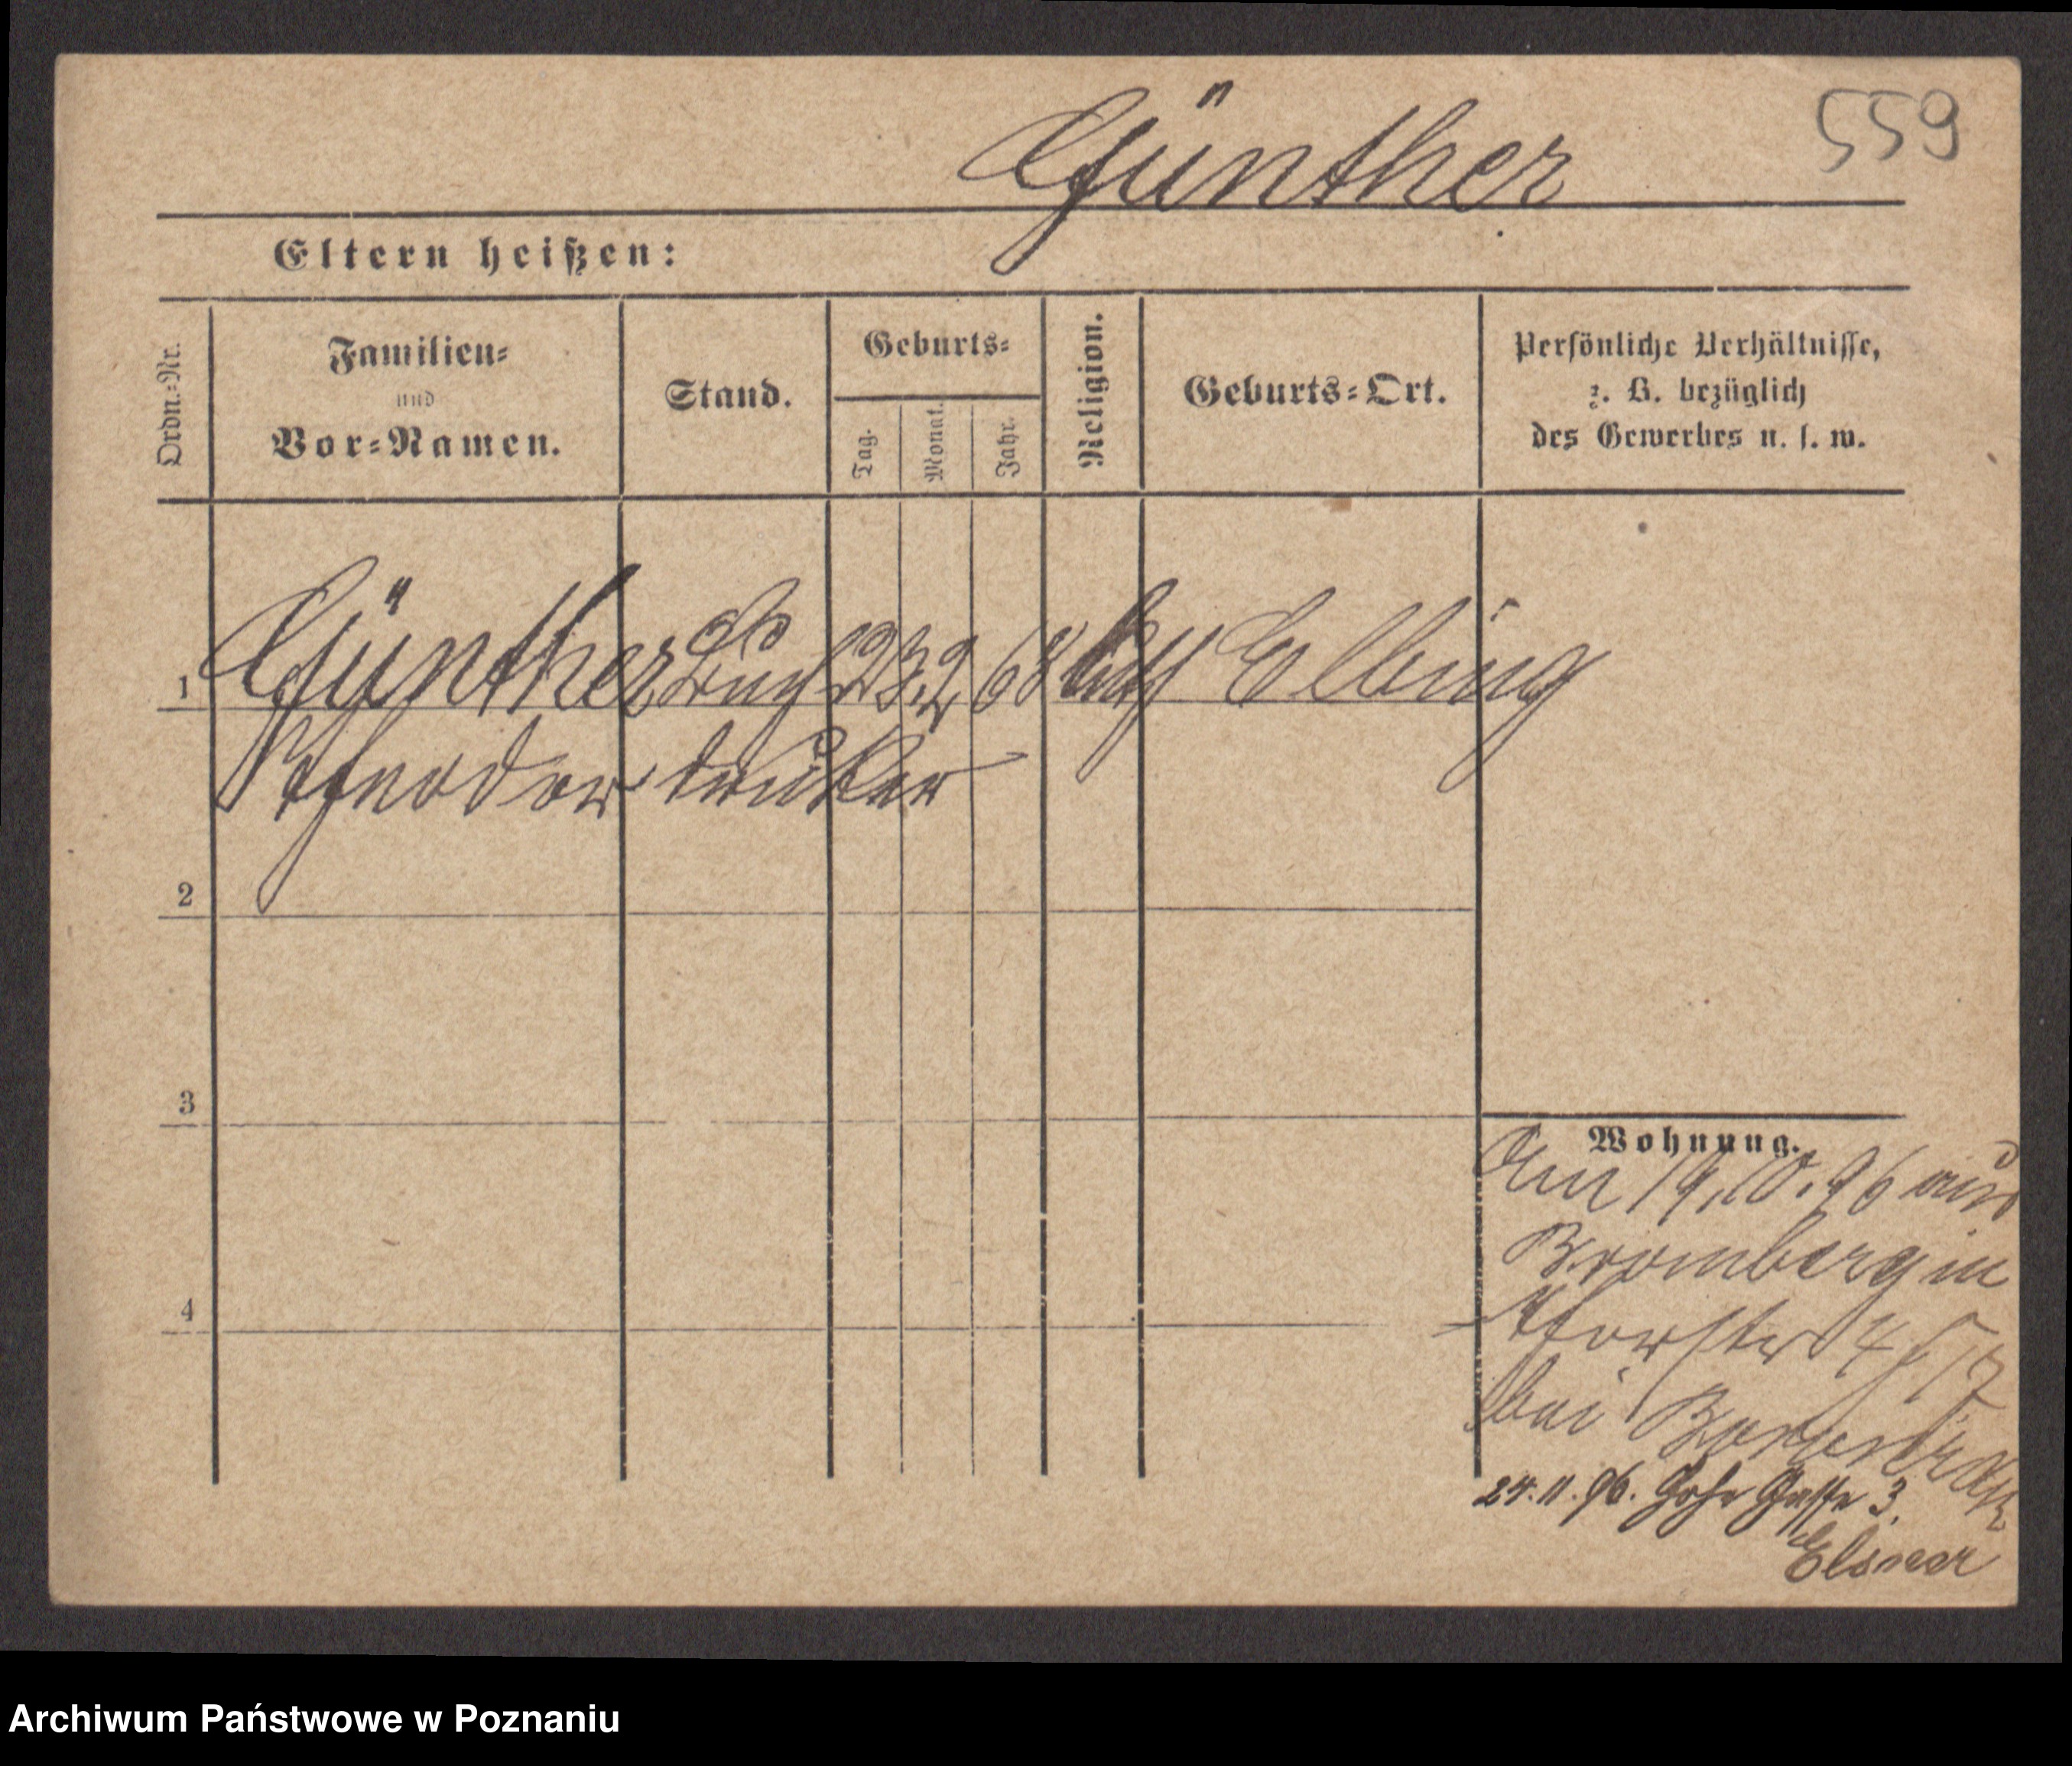 Günther
559
Eltern heißen:
Ordn.=Nr.
Familien=
und
Vor=Namen.
Stand.
Geburts=
Tag.
Monat.
Jahr.
Religion.
Geburts=Ort.
Persönliche Verhältnisse,
z. B. bezüglich
des Gewerbes u. s. w.
1 Günther Buch 23. 2 68 Elbing
Theodor druker
2
3
4
Wohnung.
Am 19.10.96 aus
Bromberg in
bei
24.11.96. Hohe Gasse 3.
Elsner
Archiwum Państwowe w Poznaniu